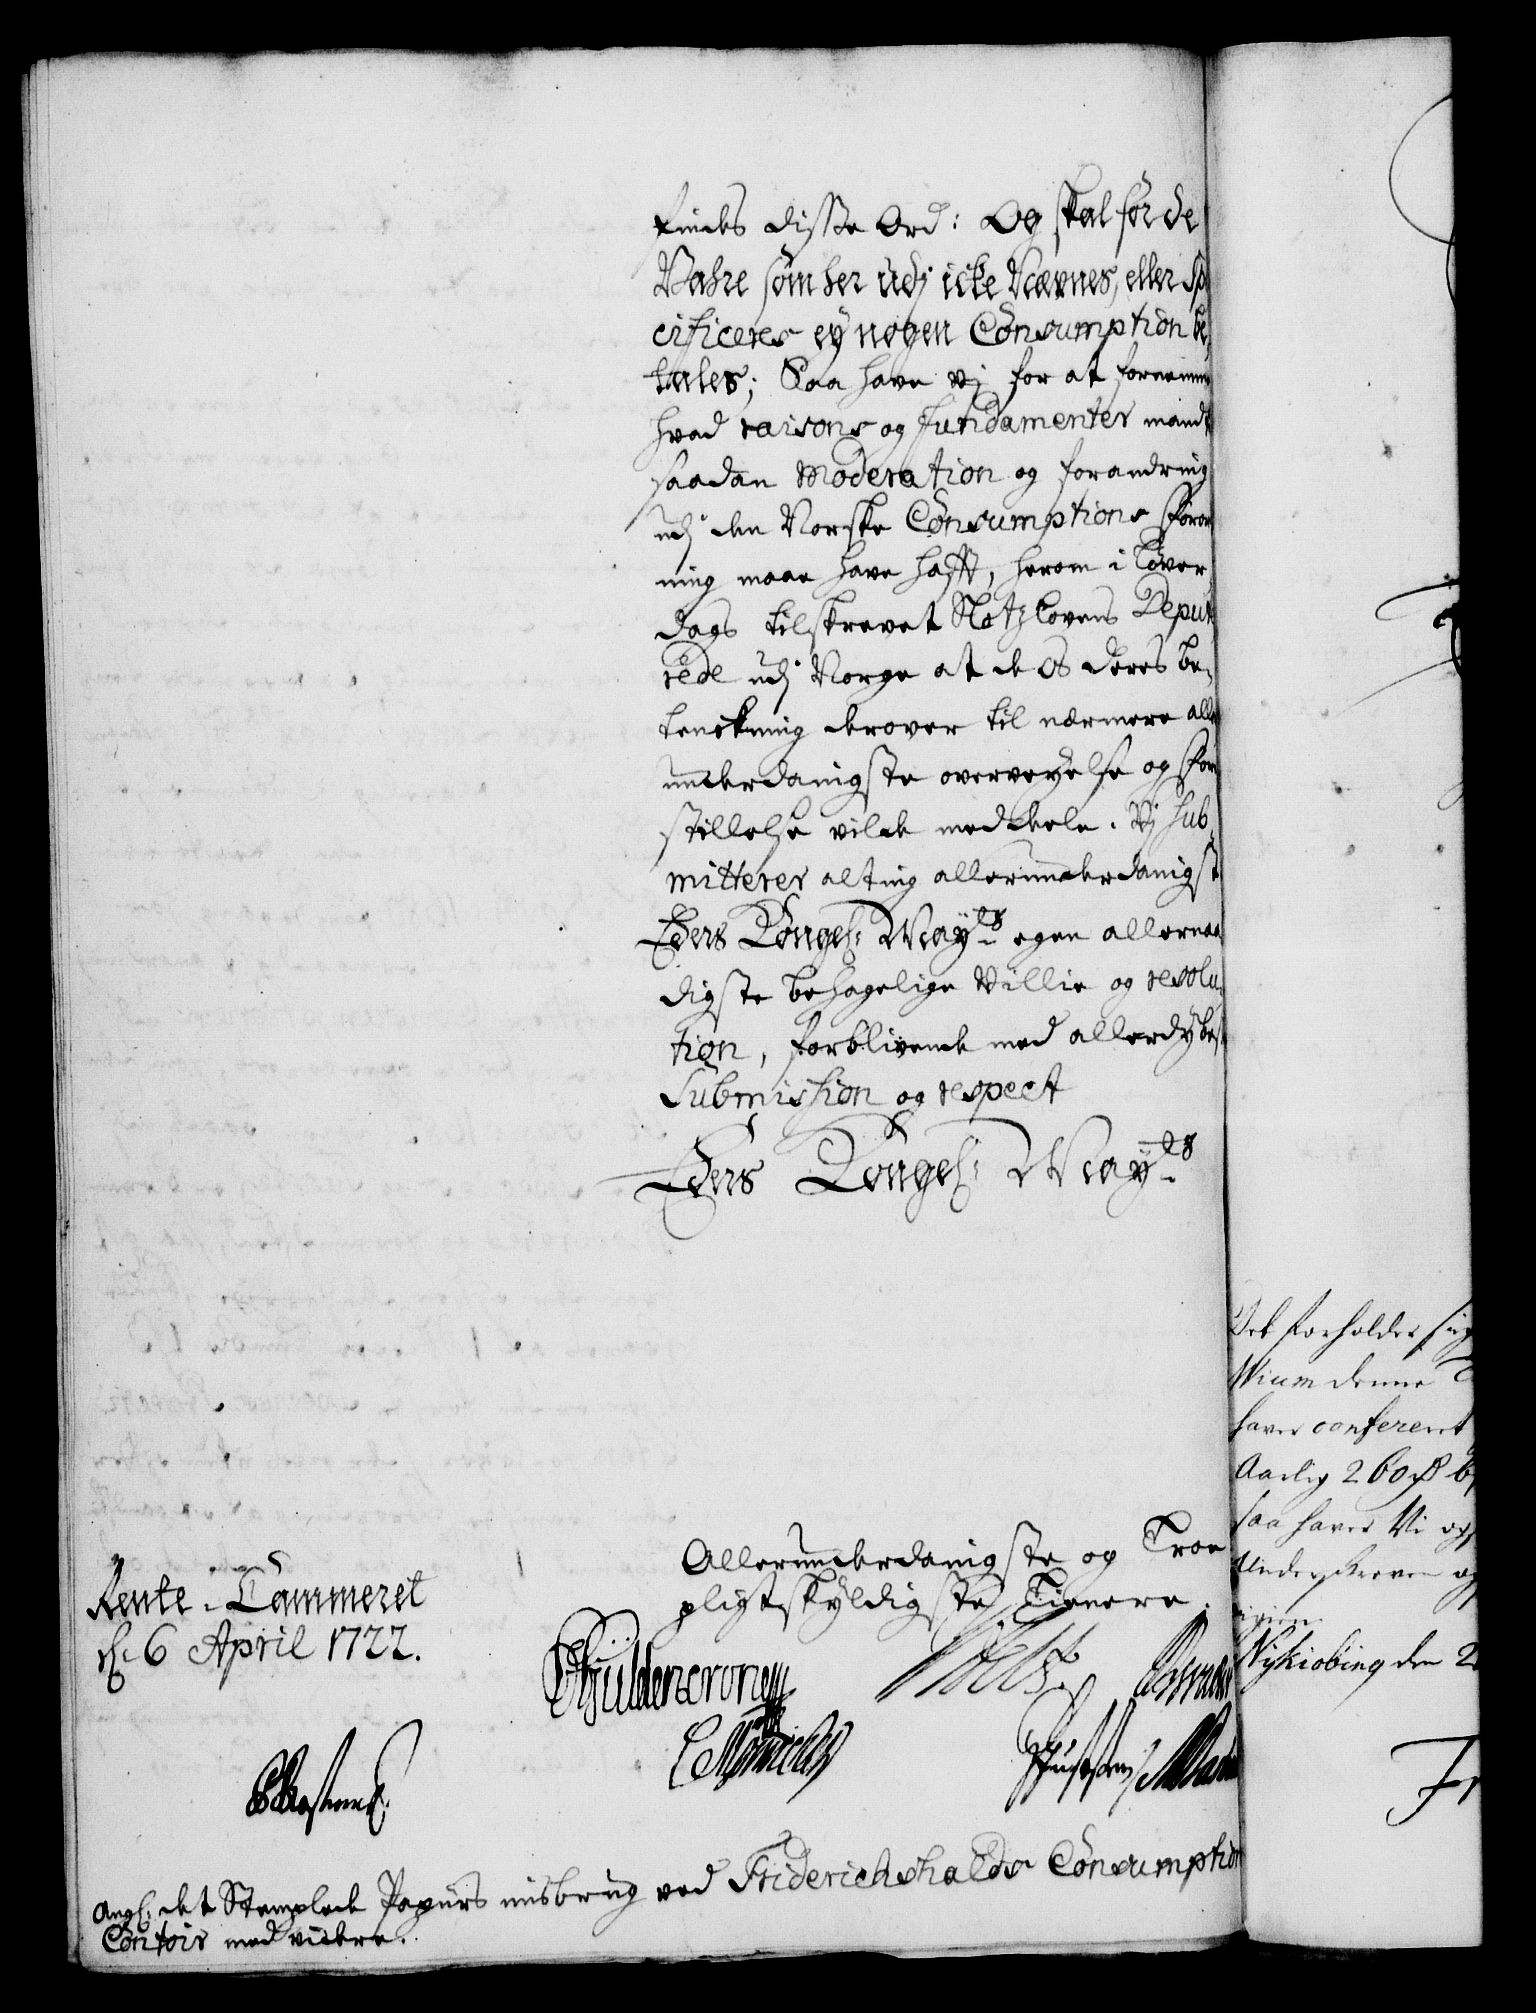 findes disse Ord: Og skal for de
Vahre som her udj icke Nævnes, eller Spe
cificeres ey nogen Consumption be,
tales; Saa have vj for at fornemme
hvad raisons og fundamenter mand
saadan Moderation og forandring
udj den Norske Consumptions Foror
ning maae have hafft, herom i Løver
dags tilskrevet Slotzlovens Deput
rede udj Norge at de os deres be,
tenckning derover til nærmere aller
underdanigste overveyelse og For
stillelse vilde meddeele. Vj sub,
mitterer alting allerunderdanigst
Eders Kongel: May:ts egen allernaa
digste behagelige Villie og resolu,
tion, forblivende med allerdybes
Submission og respect
Eders Kongel: May:ts
Allerunderdanigste og Troe
pligtskyldigste Tienere.
Rente-Cammeret
d. 6 April 1722.
Güldencrone
Angl: det Stemplede Papiirs misbrug ved Friderichshalds Consumption
Contoir med viidere.
Det forholder sig
Wium denne
haver confereret
Aarlig 260 rd
saa haver Vi og
Underskreven og
igien.
Nykiøbing den 2
Fr